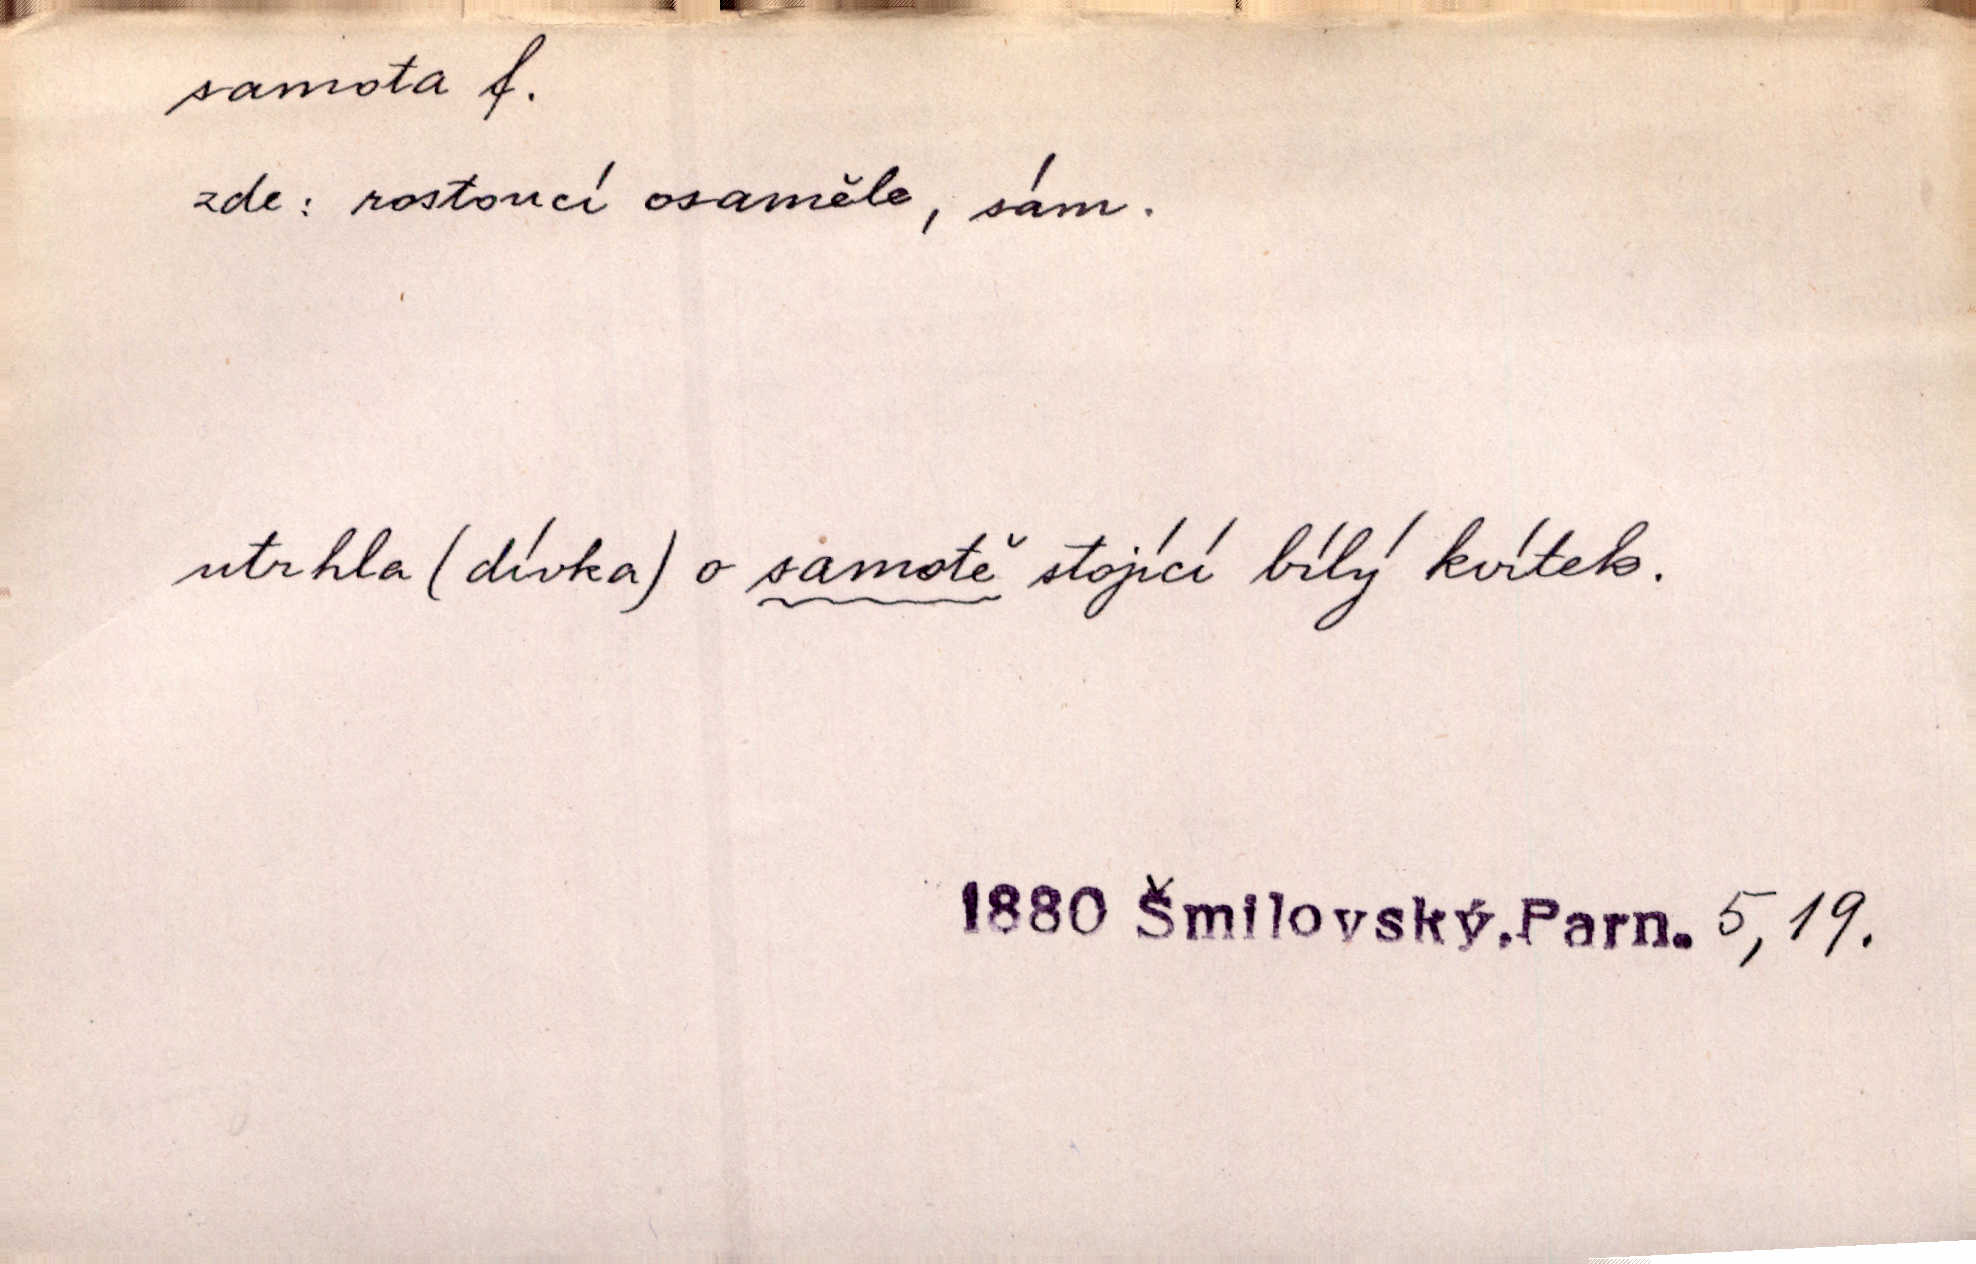 samota f.
zde: rostoucí osaměle, sám.
utrhla (dívka) o samotě stojící bílý kvítek.
1880 Šmilovský.Parn. 5, 19.